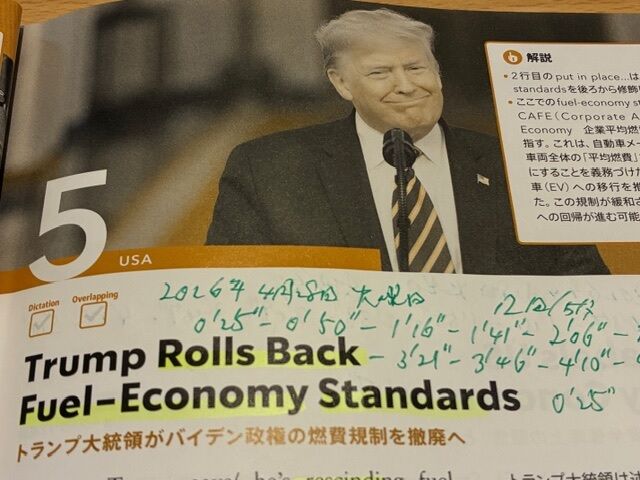 b 解説
・2行目のput in place…は
standardsを後ろから修飾
・ここでのfuel-economy s
CAFE(Corporate A
Economy 企業平均燃
指す。これは、自動車メー
車両全体の「平均燃費」
にすることを義務づけた
車(EV)への移行を推
た。この規制が緩和さ
への回帰が進む可能
5
USA
Dictation Overlapping
2026年 4月28日 火曜日 12回/5分
0'25"-0'50"-1'16"-1'41"-2'06"-
Trump Rolls Back -3'21"-3'46"-4'10"-
Fuel-Economy Standards 0'25"
トランプ大統領がバイデン政権の燃費規制を撤廃へ
he's rescinding fuel
トランプ大統領は